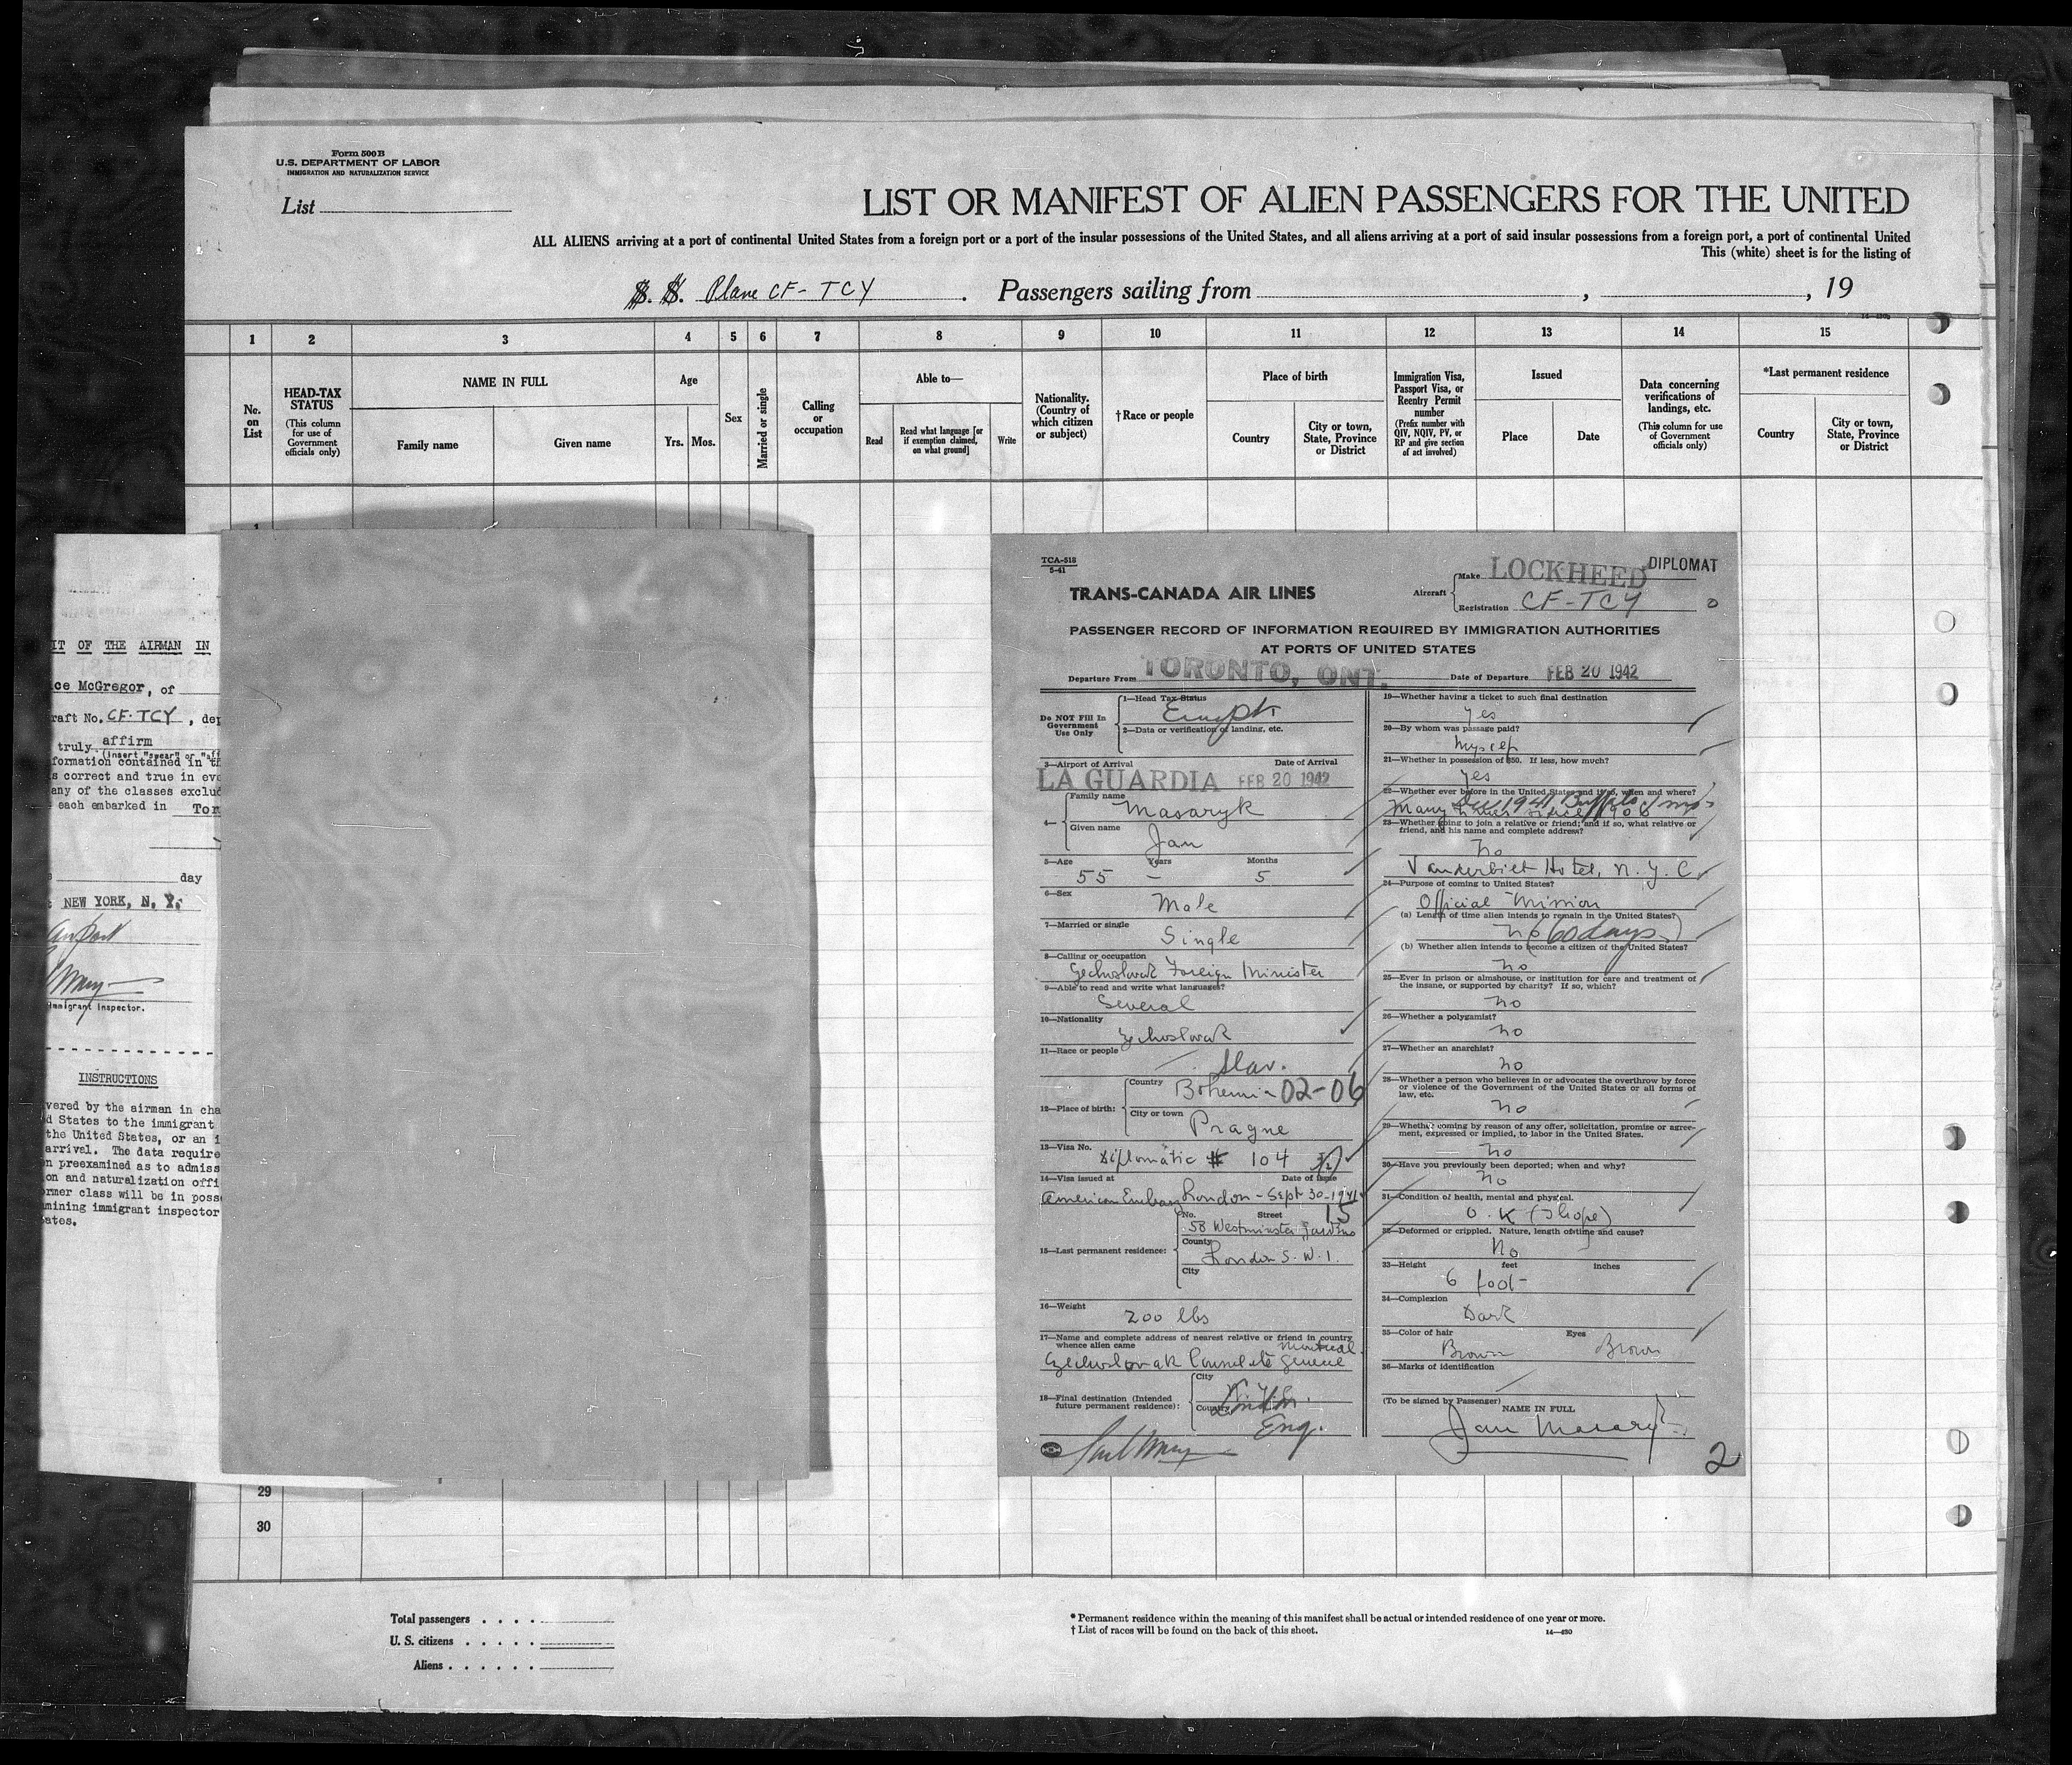 Form 500 B
U.S. DEPARTMENT OF LABOR
IMMIGRATION AND NATURALIZATION SERVICE
List
LIST OR MANIFEST OF ALIEN PASSENGERS FOR THE UNITED
ALL ALIENS arriving at a port of continental United States from a foreign port or a port of the insular possessions of the United States, and all aliens arriving at a port of said insular possessions from a foreign port, a port of continental United
This (white) sheet is for the listing of
S. S. Plane CF-TCY. Passengers sailing from , , 19
1 2 3 4 5 6 7 8 9 10 11 12 13 14 15
No. on List
HEAD-TAX STATUS
(This column for use of Government officials only)
NAME IN FULL
Family name
Given name
Age
Yrs. Mos.
Sex
Married or single
Calling or occupation
Able to—
Read
Read what language [or if exemption claimed, on what ground]
Write
Nationality. (Country of which citizen or subject)
†Race or people
Place of birth
Country
City or town, State, Province or District
Immigration Visa, Passport Visa, or Reentry Permit number
(Prefix number with QIV, NQIV, PV, or RP and give section of act involved)
Issued
Place
Date
Data concerning verifications of landings, etc.
(This column for use of Government officials only)
*Last permanent residence
Country
City or town, State, Province or District
IT OF THE AIRMAN IN
ce McGregor, of
raft No. CF-TCY, dep
truly affirm
(insert "swear" or "aff
formation contained in th
s correct and true in eve
any of the classes exclud
each embarked in Tor
day
NEW YORK, N. Y.
Immigrant Inspector.
INSTRUCTIONS
vered by the airman in cha
d States to the immigrant
the United States, or an i
arrival. The data require
n preexamined as to admiss
on and naturalization offi
ormer class will be in poss
mining immigrant inspector
ates.
TCA-518
5-41
TRANS-CANADA AIR LINES
DIPLOMAT
Aircraft
Make LOCKHEED
Registration CF-TCY
PASSENGER RECORD OF INFORMATION REQUIRED BY IMMIGRATION AUTHORITIES
AT PORTS OF UNITED STATES
Departure From TORONTO, ONT. Date of Departure FEB 20 1942
Do NOT Fill In
Government
Use Only
1—Head Tax Status
Exempt
2—Data or verification of landing, etc.
3—Airport of Arrival Date of Arrival
LA GUARDIA FEB 20 1942
4—
Family name
Masaryk
Given name
Jan
5—Age Years Months
55 – 5
6—Sex
Male
7—Married or single
Single
8—Calling or occupation
Foreign Minister
9—Able to read and write what languages?
Several
10—Nationality
11—Race or people
Slav.
12—Place of birth:
Country
Bohemia 02-06
City or town
Prague
13—Visa No.
Diplomatic # 104
14—Visa issued at Date of Issue
American Embassy London - Sept 30-1941
15
15—Last permanent residence:
No. Street
58 Westminster Gardens
County
London S.W.1.
City
16—Weight
200 lbs
17—Name and complete address of nearest relative or friend in country
whence alien came
Montreal
Czechoslovak Consulate General
18—Final destination (Intended
future permanent residence):
City
Country
London
Eng.
19—Whether having a ticket to such final destination
Yes
20—By whom was passage paid?
Myself
21—Whether in possession of $50. If less, how much?
Yes
22—Whether ever before in the United States and if so, when and where?
Dec 1941 Buffalo
Many times since 1906
23—Whether going to join a relative or friend; and if so, what relative or
friend, and his name and complete address?
No
Vanderbilt Hotel, N.Y.C.
24—Purpose of coming to United States?
Official Mission
(a) Length of time alien intends to remain in the United States?
no (60 days)
(b) Whether alien intends to become a citizen of the United States?
no
25—Ever in prison or almshouse, or institution for care and treatment of
the insane, or supported by charity? If so, which?
no
26—Whether a polygamist?
no
27—Whether an anarchist?
no
28—Whether a person who believes in or advocates the overthrow by force
or violence of the Government of the United States or all forms of
law, etc.
no
29—Whether coming by reason of any offer, solicitation, promise or agree-
ment, expressed or implied, to labor in the United States.
no
30—Have you previously been deported; when and why?
no
31—Condition of health, mental and physical.
O.K (I hope)
32—Deformed or crippled. Nature, length of time and cause?
No
33—Height feet inches
6 foot
34—Complexion
Dark
35—Color of hair Eyes
Brown Brown
36—Marks of identification
(To be signed by Passenger)
NAME IN FULL
Jan Masaryk
2
29
30
Total passengers . . . .
U. S. citizens . . . . .
Aliens . . . . . .
* Permanent residence within the meaning of this manifest shall be actual or intended residence of one year or more.
† List of races will be found on the back of this sheet.
14—430